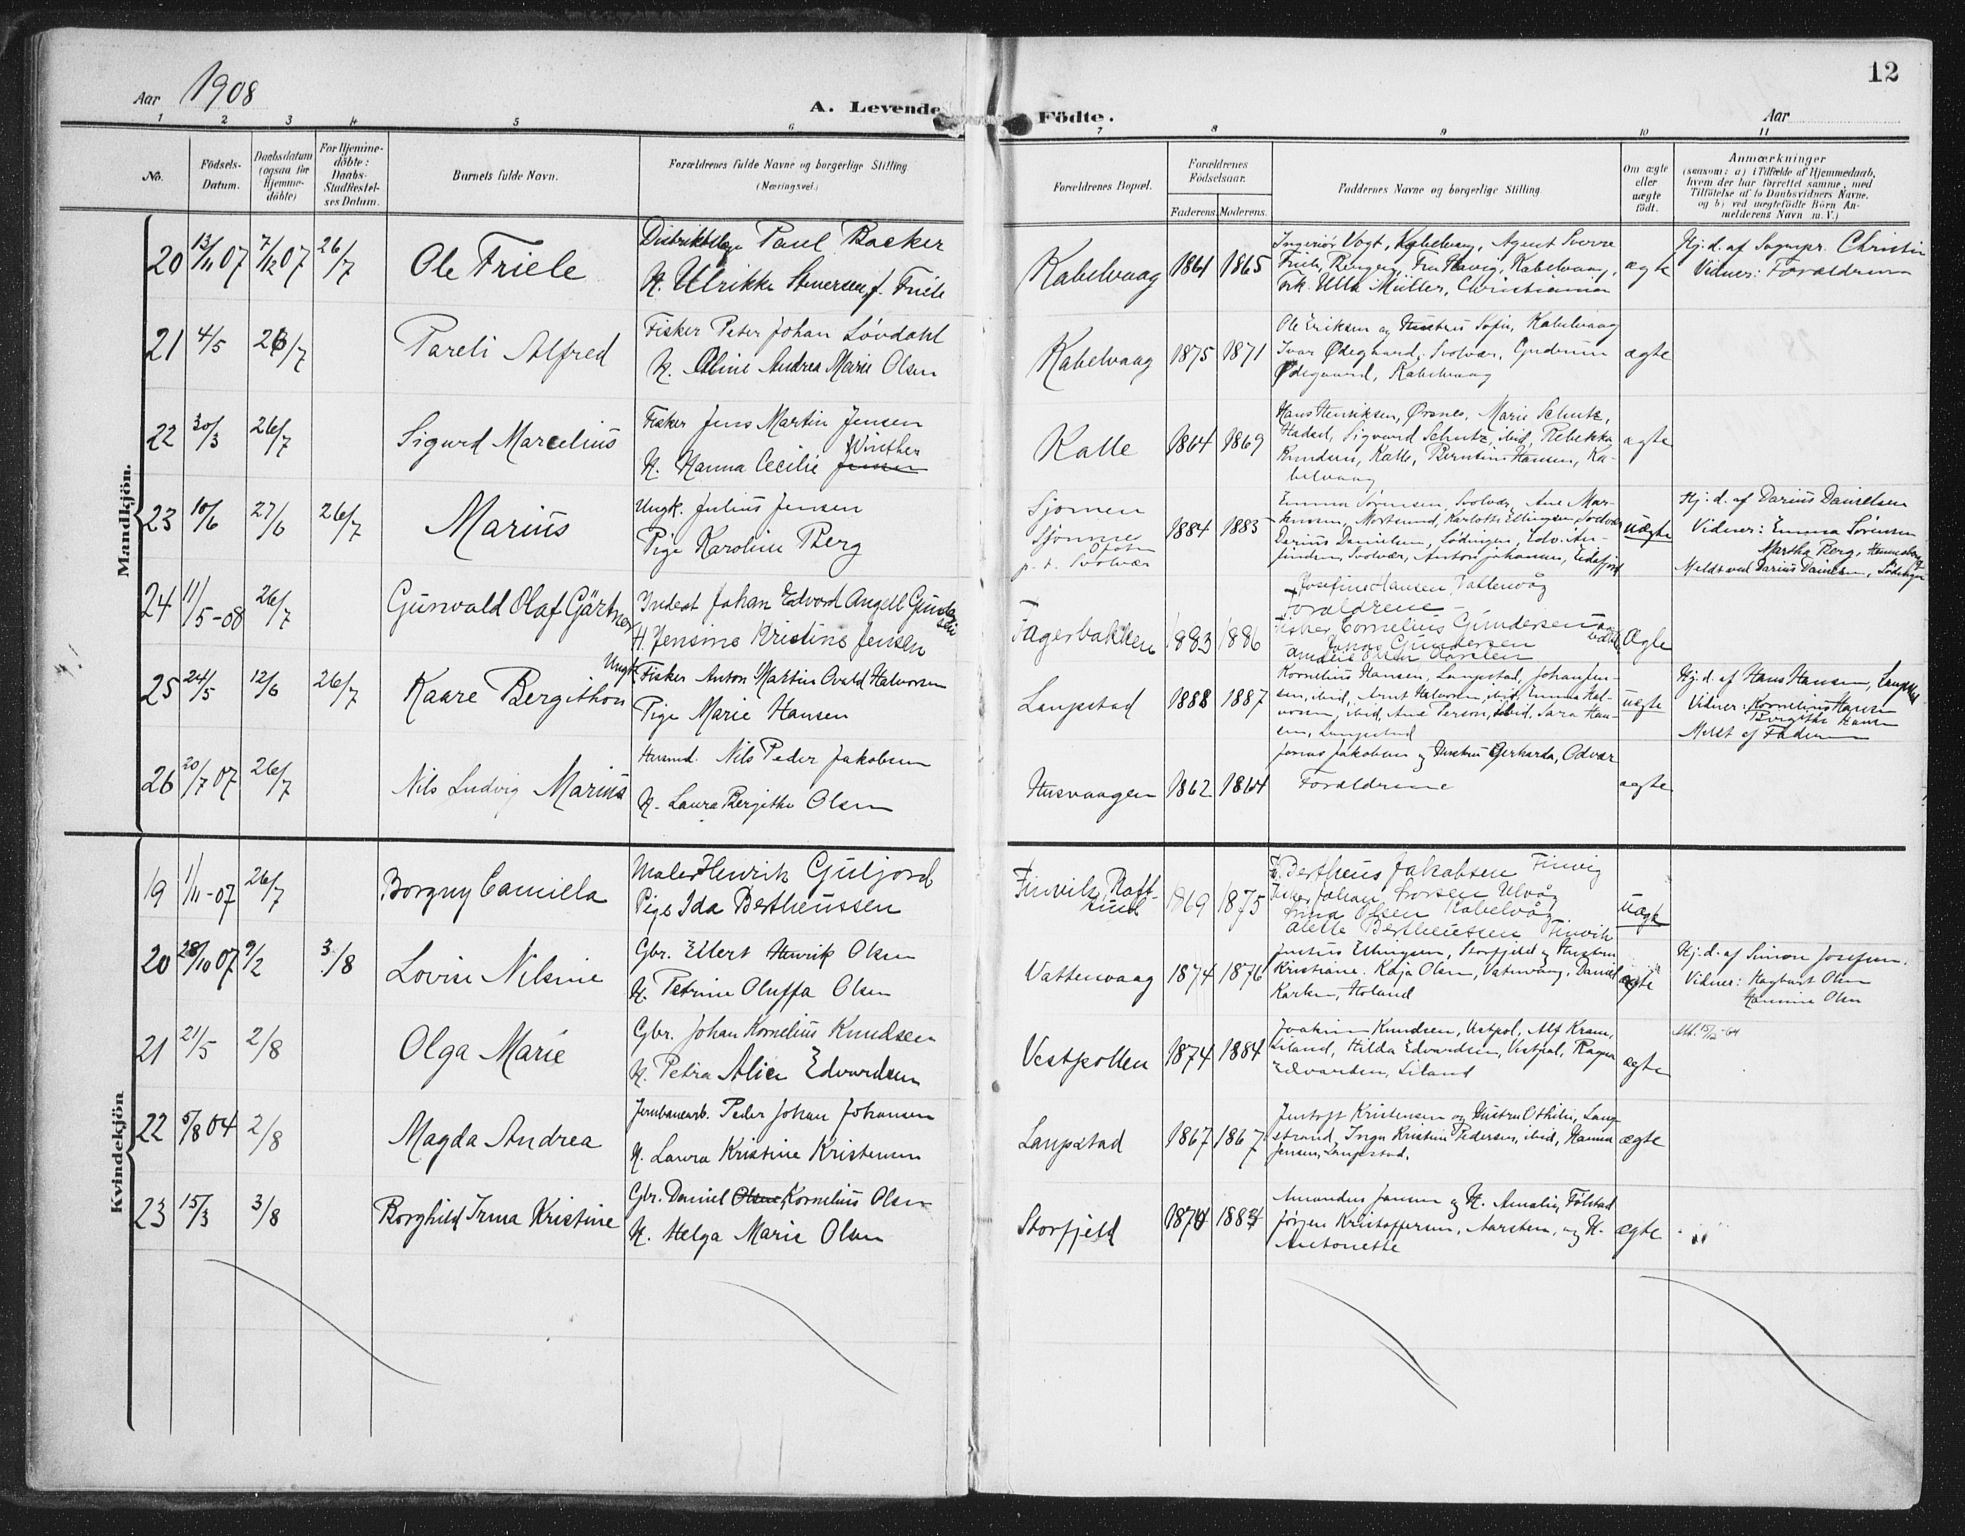 12
Aar 1908
A. Levende Födte.
Aar
1 2 3 4 5 6 7 8 9 10 11
No.
Födsels-Datum.
Daabsdatum (ogsaa for Hjemme-döbte)
For Hjemme-döbte: Daabs-Stadfæstel-ses Datum.
Barnets fulde Navn.
Forældrenes fulde Navne og borgerlige Stilling (Næringsvei.)
Forældrenes Bopæl.
Forældrenes Födselsaar.
Faderens Moderens.
Faddernes Navne og borgerlige Stilling.
Om ægte eller uægte födt.
Anmærkninger
(saasom: a) i Tilfælde af Hjemmedaab,
hvem der har forrettet samme, med
Tilföielse af to Daabsvidners Navne.
og b) ved uægtefödte Börn An-
melderens Navn m. V.)
Mandkjön.
20 13/11 07 7/12 07 26/7 Ole Friele
Paul Backer
H. Ulrikke Stenersen f. Friele
Kabelvaag 1861 1865
Ingeniør Vogt, Kabelvaag, Agent Sverre
Friele, Bergen, Fru Havig, Kabelvaag,
Frk. Ulla Müller, Christiania
ægte
Hj. d. af Sognepr. Christin
Vidner: Forældrene
21 4/5 26/7 Pareli Alfred
Fisker Peter Johan Løvdahl
H. Oline Andrea Marie Olsen
Kabelvaag 1875 1871
Ole Eriksen og Hustru Sofie, Kabelvaag
Ivar Ødegaard, Svolvær, Gudrun
Ødegaard, Kabelvaag
ægte
22 30/3 26/7 Sigurd Marcelius
Fisker Jens Martin Jensen
Winther
H. Hanna Cecilie Jensen
Kalle 1864 1869
Hans Henriksen, Ørsnes, Marie Schutz,
Hadsel, Sigvard Schutz, ibid, Rebekka
Knudsen, Kalle, Berntine Hansen, Ka-
belvaag
ægte
23 10/6 27/6 26/7 Marius
Ungk. Julius Jensen
Pige Karoline Berg
Sjømen
Sjømnes
p. t. Svolvær
1884 1883
Emma Sørensen, Svolvær, Ane Mar-
tensen, Mortsund, Karlotte Ellingsen, Svolvær
Darius Danielsen, Lødingen, Edv. An-
findsen, Svolvær, Anton Johansen, Eidsfjord
uægte
Hj. d. af Darius Danielsen
Vidner: Emma Sørensen
Martha Berg,
Meldt ved Darius Danielsen, Lødingen
24 11/5-08 26/7 Gunvald Olaf Gärtner
Indest Johan Edvard Angell Gunder
sen
H. Jensine Kristine Jensen
Fagerbakken 1883 1886
Josefine Hansen
Forældrene
Fisker Cornelius Gundersen
Jonas Gundersen
ægte
25 24/5 12/6 26/7 Kaare Bergithon
Ungk. Fisker Anton Martin Ovald Halvorsen
Pige Marie Hansen
Laupstad 1888 1887
Kornelius Hansen, Laupstad, Johan Jen-
sen, ibid, Arnt Halvorsen, ibid, Emma Hal-
vorsen, ibid, Ane Person, ibid, Sara Han-
sen, Laupstad
uægte
Hj. d. af Hans Hansen, Laupstad
Vidner: Kornelius Hansen
Bergitte Hansen
Meldt af Faderen
26 20/7 07 26/7 Nils Ludvig Marius
Husmd. Nils Peder Jakobsen
H. Laura Bergitha Olsen
Husvaagen 1862 1864
Jonas Jakobsen og Hustru Gerharda, Odvær
Forældrene
ægte
Kvindekjön
19 1/11-07 26/7 Borgny Camilla
Maler Henrik Guljord
Pige Ida Bertheussen
Finvik, Raft
sund
1869 1875
F. Bertheus Jakobsen Finvig
Fisker Johan Larsen Ulvåg
Anna Olsen Kabelvåg
Bertheussen Finvik
uægte
20 28/10 07 9/2 3/8 Lovise Nilsine
Gbr. Ellert Henrik Olsen
H. Petrine Oluffa Olsen
Vattenvaag 1874 1876
Justus Ellingsen, Storfjeld og Hustru
Kristiane. Kaja Olsen, Vatnvaag, Daniel
Karlsen, Holand
ægte
Hj. d. af Simon Josefsen.
Vidner: Hagbart Olsen
Hansine Olsen
21 21/5 2/8 Olga Marie
Gbr. Johan Kornelius Knudsen
H. Petra Alise Edvardsen
Vestpollen 1874 1884
Joakim Knudsen, Vestpol, Alf Kram,
Liland, Hilda Edvardsen, Vestpol, Ragna
Edvardsen, Liland
ægte
Att. 15/12-64
22 5/8 04 2/8 Magda Andrea
Jernbanearb. Peder Johan Johansen
H. Laura Kristine Kristensen
Laupstad 1867 1867
Jentoft Kristensen og Hustru Othilie, Laup-
strand, Inga Kristine Pedersen, ibid, Hanna
Jensen, Laupstad.
ægte
23 15/3 3/8 Borghild Irma Kristine
Gbr. Daniel Olsen Kornelius Olsen
H. Helga Marie Olsen
Storfjeld 1874 1884
Amandus Jansen og H. Amalie, Følstad
Jørgen Kristoffersen, Aarsten, og H.
Antonette
ægte